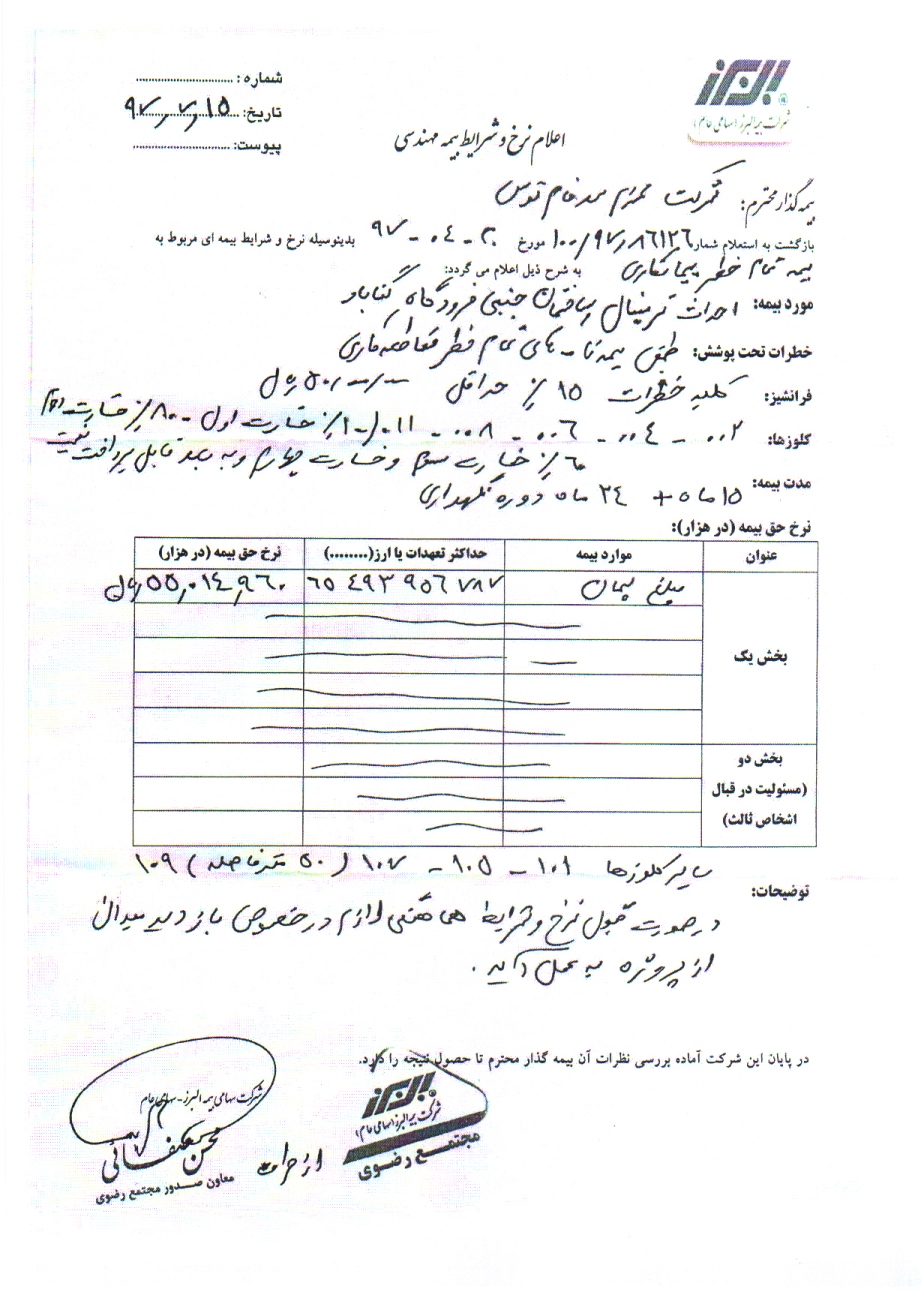 البرز
شرکت بیمه البرز (سهامی عام)
شماره : ............................
تاریخ: ۹۷٫۷٫۱۵
پیوست: ............................
اعلام نرخ و شرایط بیمه مهندسی
بیمه گذار محترم: شرکت محترم توس
بازگشت به استعلام شماره ۱۰۰/۹۷٫۸۶۱۲۶ مورخ ۹۷-۰۴-۲۰ بدینوسیله نرخ و شرایط بیمه ای مربوط به
بیمه تمام خطر پیمانکاری به شرح ذیل اعلام می گردد:
مورد بیمه: احداث ترمینال ساختمان جنبی فرودگاه گناباد
خطرات تحت پوشش: طبق بیمه نامه های تمام خطر مقاطعه کاری
فرانشیز: کلیه خطرات ۱۵٪ حداقل ۵۰٫۰۰۰٫۰۰۰ ریال
کلوزها: ۰۰۲ - ۰۰۴ - ۰۰۶ - ۰۰۸ - ۰۱۱ (۱۰۰٪ خسارت اول - ۸۰٪ خسارت دوم
۶۰٪ خسارت سوم و خسارت چهارم و به بعد قابل پرداخت نیست
مدت بیمه: ۱۵ ماه + ۲۴ ماه دوره نگهداری
نرخ حق بیمه (در هزار):
عنوان موارد بیمه حداکثر تعهدات یا ارز(.........) نرخ حق بیمه (در هزار)
بخش یک مبلغ پیمان ۶۵ ۴۹۳ ۹۵۶ ۷۸۷ ۵۵٫۰۱۴٫۹۶۰ ریال
بخش دو
(مسئولیت در قبال
اشخاص ثالث)
سایر کلوزها ۱۰۱ - ۱۰۵ - ۱۰۷ (۵۰ متر فاصله) ۱۰۹
توضیحات:
در صورت قبول نرخ و شرایط هماهنگی لازم در خصوص بازدید میدانی
از پروژه به عمل آید.
در پایان این شرکت آماده بررسی نظرات آن بیمه گذار محترم تا حصول نتیجه را دارد.
البرز
شرکت بیمه البرز (سهامی عام)
مجتمع رضوی
شرکت سهامی بیمه البرز - سهامی عام
محسن
معاون صدور مجتمع رضوی
از طرف